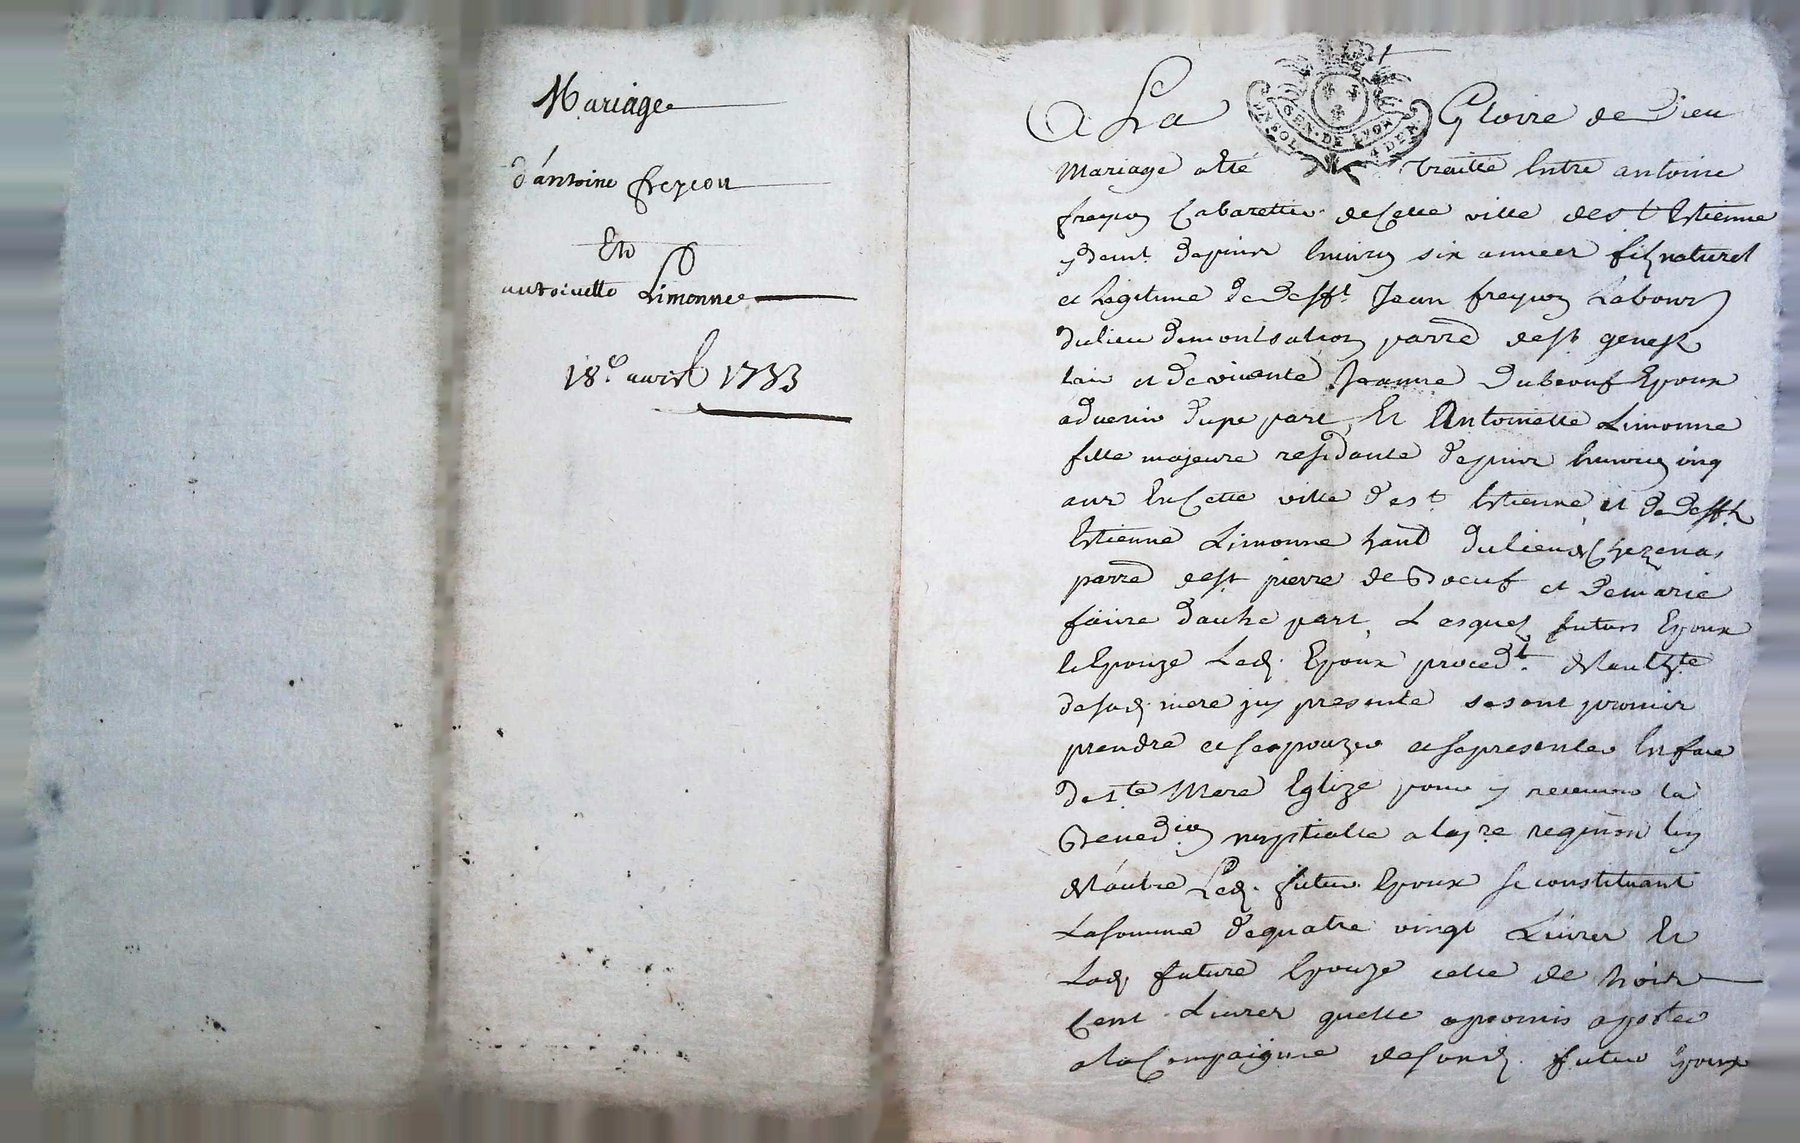 Mariage
d'antoine freycon
Et
antoinette Limonne
18e. avril 1733
A La Gloire de Dieu
GEN. DE LYON
Mariage a été traitté Entre antoine
freycon Cabarettier de Cette ville de st Estienne
y demt. depuis Environ six années fils naturel
et Légitime de defft. Jean freycon Labourr
du lieu de montsalson parre de st. genest
lair et de vivante Jeanne Dubeouf Epoux
advenir d'upe part, Et Antoinette Limonne
fille majeure résidante depuis Environ cinq
ans En Cette ville de st. Estienne et de defft
Estienne Limonne hant du lieu de Chezenas
parre de st. pierre de Boeuf et de marie
faure d'autre part, Lesquels futurs Epoux
et Epouze Led. Epoux procedt. de l'authte
de sad. mere icy presente se sont promis
prendre et se epouzer et se presenter En face
de ste. Mere Eglize pour y recevoir la
Benedion nuptialle a la pre requion l'un
de l'autre Led. futur Epoux se constituant
La somme de quatre vingt Livres Et
Lad. future Epouze celle de trois
Cent Livres quelle a promis aporter
a la Compaignie de sond. futur Epoux